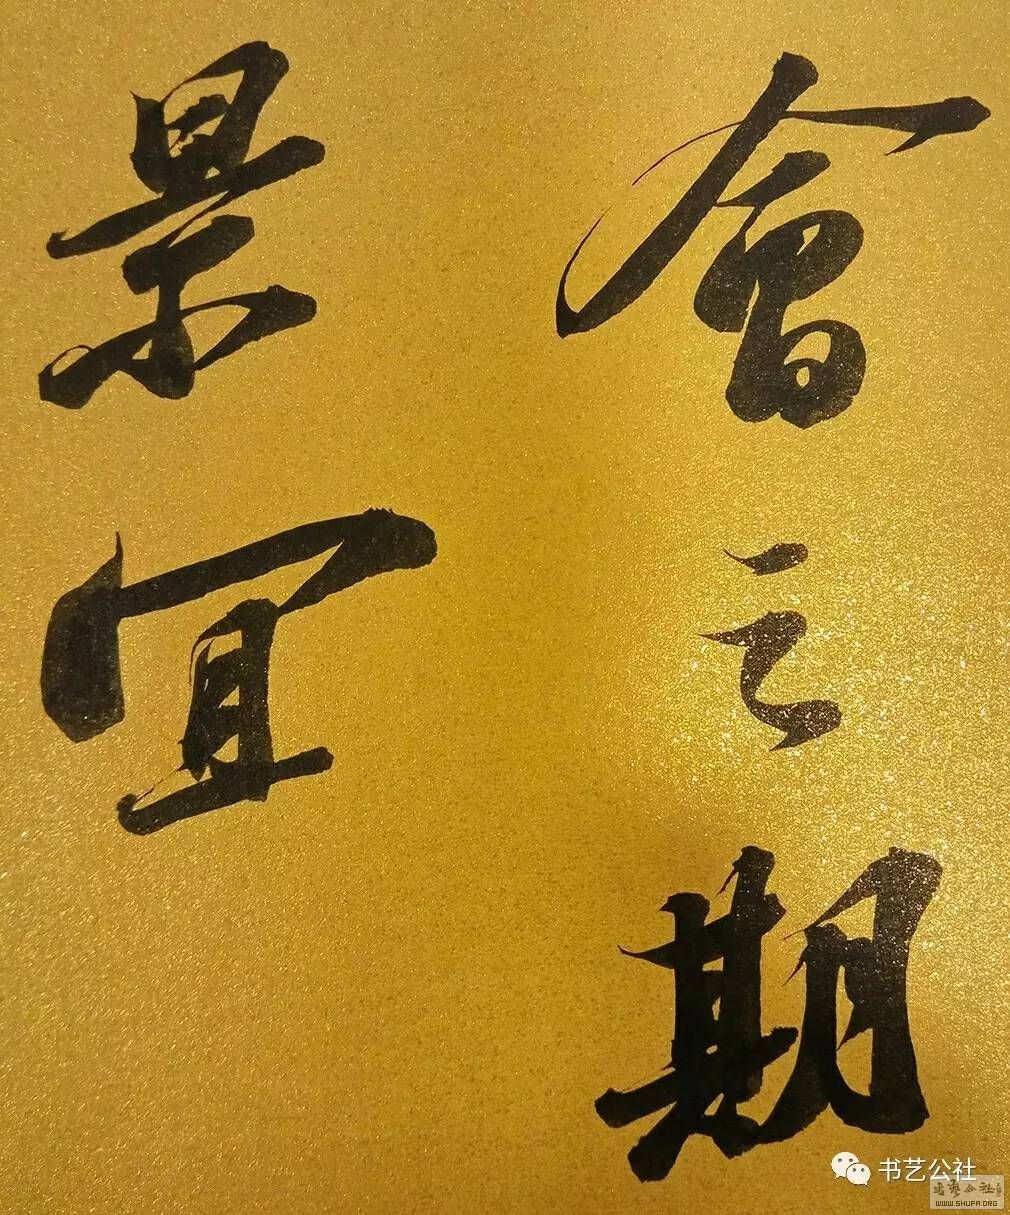 會之期
景宜
书艺公社
书艺公社
WWW.SHUFA.ORG